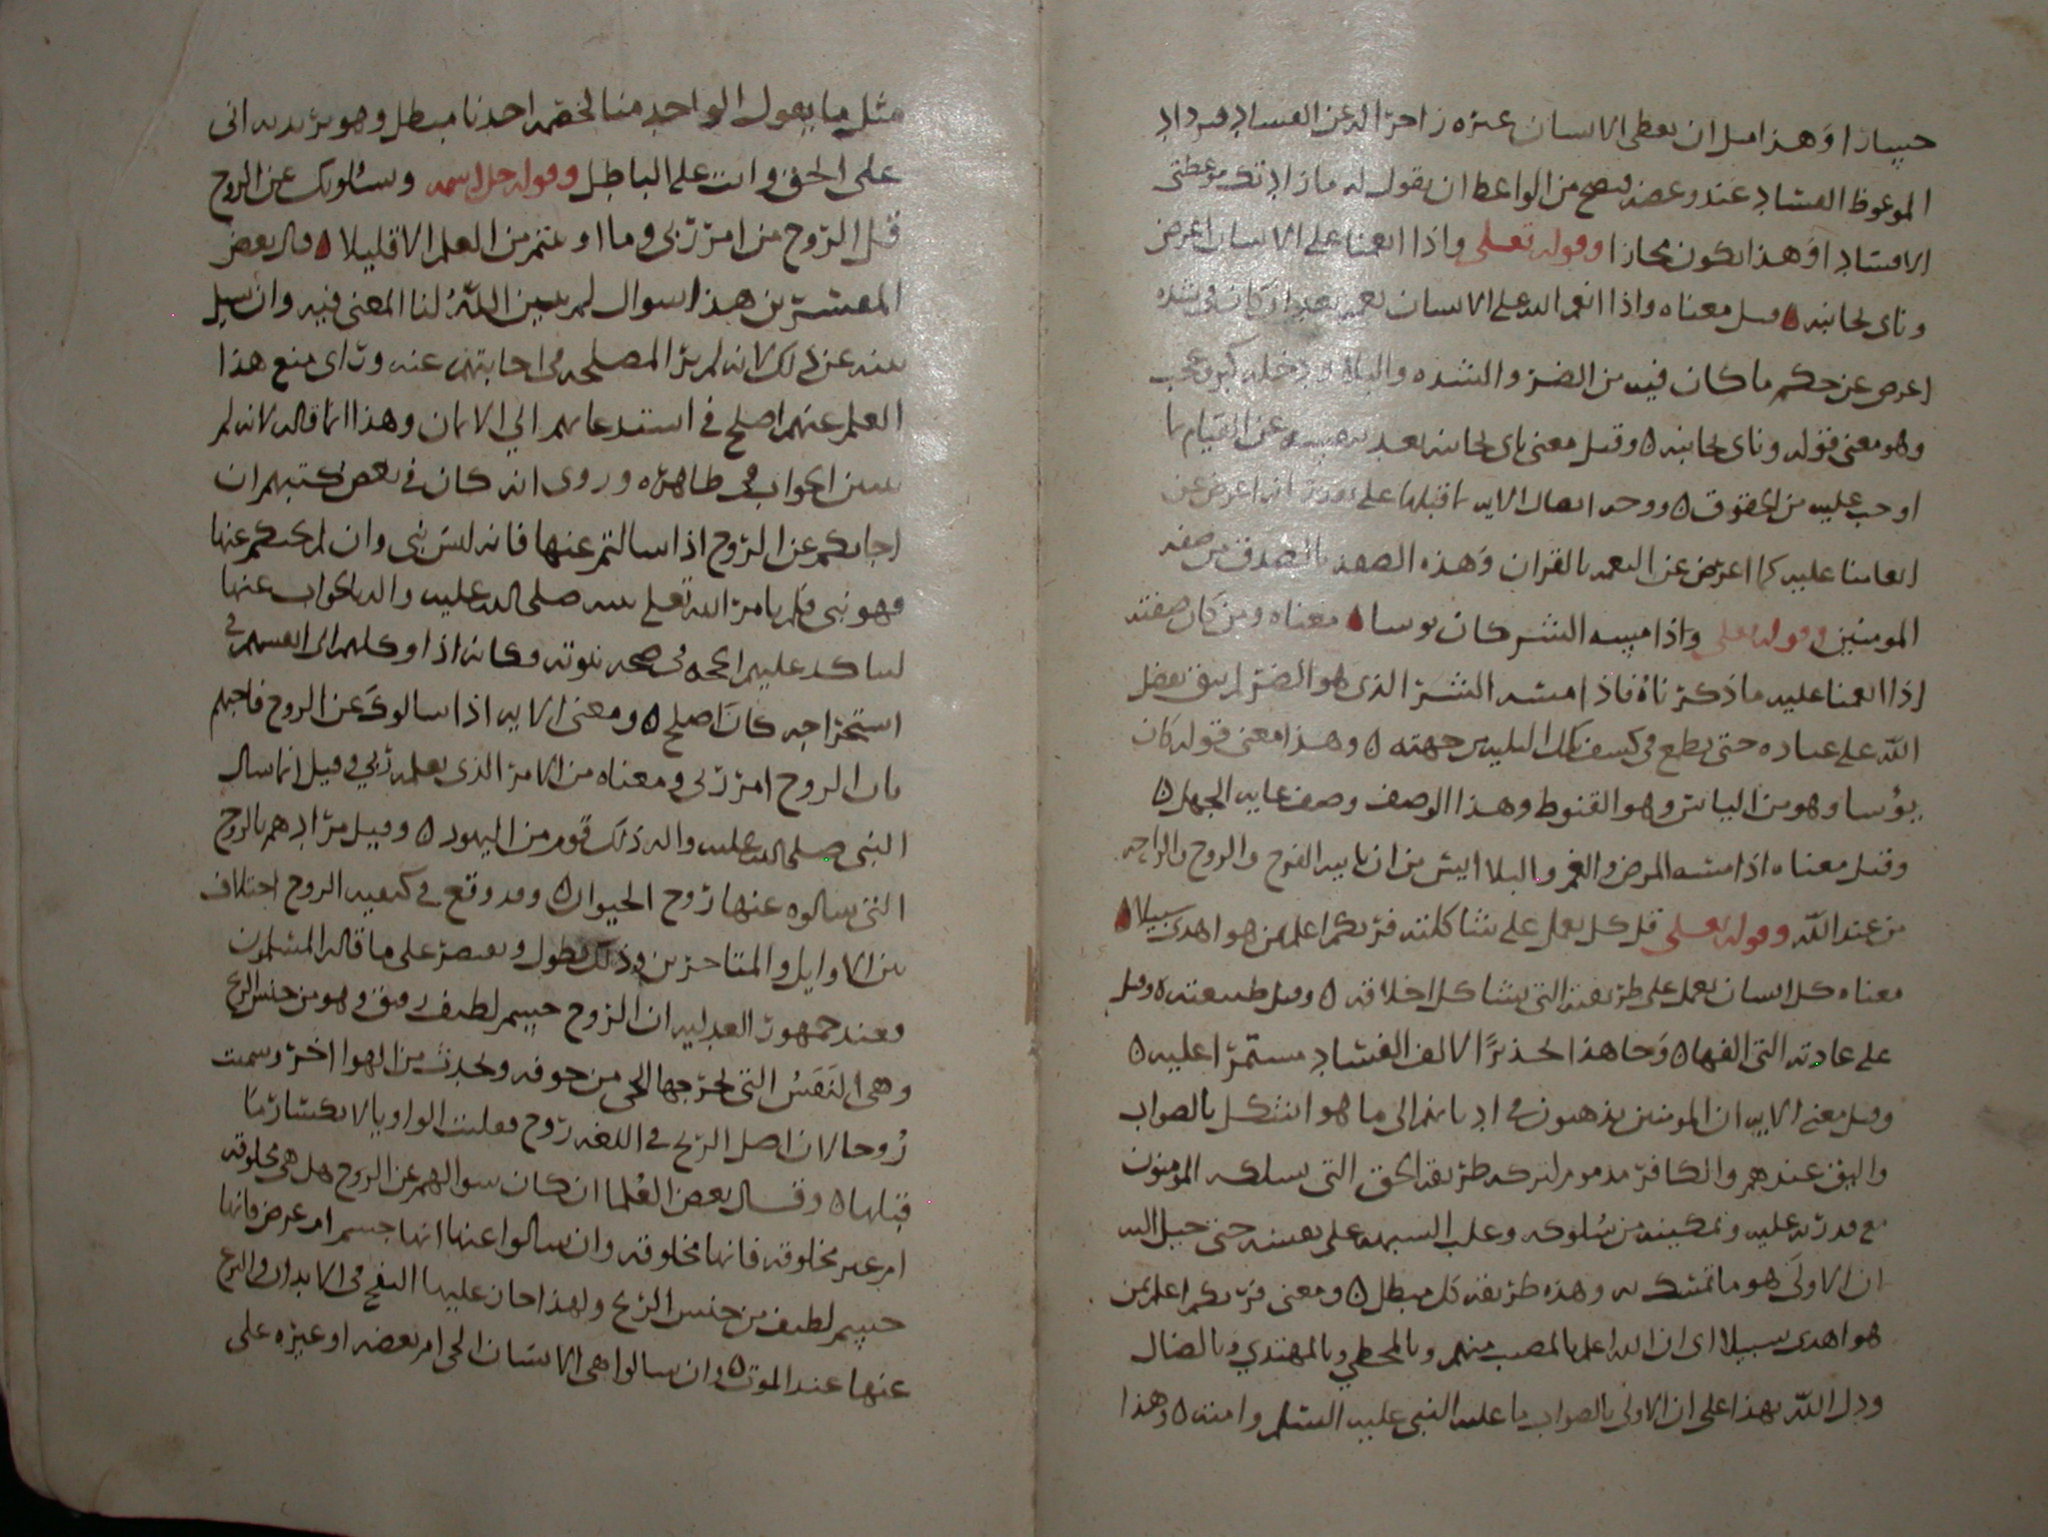 خسارا وهذا مثل ان يعظ الانسان غيره زاجرا له عن الفساد فيزداد
الموعوظ الفساد عند وعظه فيصح من الواعظ ان يقول له ما زادتك موعظتي
الا فسادا وهذا يكون مجازا وقوله تعلى واذا انعمنا على الانسان اعرض
وناى بجانبه قيل معناه واذا انعم الله على الانسان نعمة بعد ان كان في شده
اعرض عن حكم ما كان فيه من الضر والشده والبلا ودخله كبر وعجب
وهو معنى قوله وناى بجانبه ٥ وقيل معنى ناى بجانبه بعد بنفسه عن القيام بما
اوجب عليه من الحقوق ٥ ووجه اتصال الايه بما قبلها على انه اعرض عن
انعامنا عليه كما اعرض عن النعمه بالقران وهذه الصفه بالضد من صفه
المومنين وقوله تعلى واذا مسه الشر كان يوسا معناه ومن كان صفته
اذا انعمنا عليه ما ذكرناه فاذا مسه الشر الذي هو الضر لم يثق بفضل
الله على عباده حتى يطمع في كشف تلك البليه من جهته ٥ وهذا معنى قوله كان
يؤسا وهو من الياس وهو القنوط وهذا الوصف وصف غايه الجهل ٥
وقيل معناه اذا مسه المرض والغم والبلا ايس من ان ياتيه الفرج والروح والراحه
من عند الله وقوله تعلى قل كل يعمل على شاكلته فربكم اعلم بمن هو اهدى سبيلا
معناه كل انسان يعمل على طريقته التي تشاكل اخلاقه ٥ وقيل طبيعته ٥ وقيل
على عادته التي الفها ٥ وجا هذا تحذيرا لالف الفساد مستمرا عليه ٥
وقيل معنى الايه ان المومنين يذهبون في اديانهم الى ما هو اشكل بالصواب
واليق عندهم والكافر مذموم لتركه طريقه الحق التي سلكه المومنون
مع قدرته عليه وتمكينه من سلوكه وغلب الشبهه على نفسه حتى خيل اليه
ان الاولى هو ما تمسك به وهذه طريقه كل مبطل ٥ ومعنى فربكم اعلم بمن
هو اهدى سبيلا اى ان الله اعلم بالمصيب منهم وبالمخطي وبالمهتدي وبالضال
ودل الله بهذا على ان الاولى بالصواب ما عليه النبي عليه السلم وامته ٥ وهذا
مثل ما يقول الواحد منا لخصمه احدنا مبطل وهو يريد به انى
على الحق وانت على الباطل وقوله جل اسمه وسئلونك عن الروح
قل الروح من امر ربى وما اوتيتم من العلم الا قليلا وقال بعض
المفسرين هذا سوال لم يبين الله لنا المعنى فيه وان سيل
نبيه عن ذلك لانه لم ير المصلحه في اجابتهم عنه وراى منع هذا
العلم عنهم اصلح في استدعايهم الي الايمان وهذا انما قاله لانه لم
يتبين الجواب في ظاهره وروى انه كان في بعض كتبهم ان
اجابكم عن الروح اذا سالتم عنها فانه ليس بنبى وان لم يجبكم عنها
فهو نبي فلم يامر الله تعلى نبيه صلى الله عليه واله بالجواب عنها
ليتاكد عليهم الحجه في صحه نبوته وكانه اذا وكلهم الى انفسهم في
استخراجه كان اصلح ٥ ومعنى الايه اذا سالوك عن الروح فاجبهم
بان الروح امر ربى ومعناه من الامر الذى يعلمه ربي وقيل انما سال
النبى صلى الله عليه واله ذلك قوم من اليهود ٥ وقيل مرادهم بالروح
التى سالوه عنها روح الحيوان ٥ وقد وقع في كيفيه الروح اختلاف
بين الاوايل والمتاخرين وذلك يطول ونقتصر على ما قاله المسلمون
فعند جمهور العدليه ان الروح جسم لطيف رقيق وهو من جنس الريح
وهى النفس التى تخرجها الحى من جوفه وتحدث من الهوا اخر وسميت
روحا لان اصل الريح في اللغه روح فقلبت الواو يا لانكسار ما
قبلها ٥ وقال بعض العلما ان كان سوالهم عن الروح هل هى مخلوقه
ام غير مخلوقه فانها مخلوقه وان سالوا عنها انها جسم ام عرض فانها
جسم لطيف من جنس الريح ولهذا جاز عليها النفخ في الابدان والنزع
عنها عند الموت ٥ وان سالوا هى الانسان الحى ام بعضه او غيره على